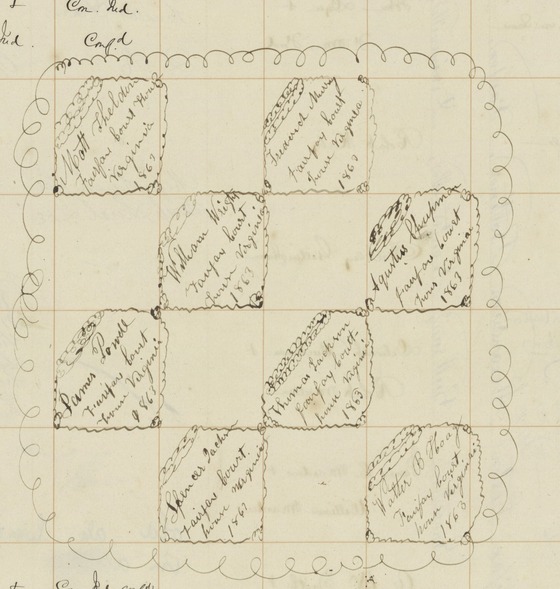 t Con. Ind.
Ind. Comp'd
Matt Sheldon
Fairfax Court
Virginia
1863
Frederick Murry
Fairfax Court
house Virginia
1863
William Wright
Fairfax Court
house Virginia
1863
Agustus Chapman
Fairfax Court
hous Virginia
1863
James Powell
Fairfax Court
house Virginia
1863
Thomas Jackson
Fairfax Court
house Virginia
1863
Spencer Jackson
Fairfax Court
house Virginia
1863
Walter B
Fairfax Court
house Virginia
1863
t